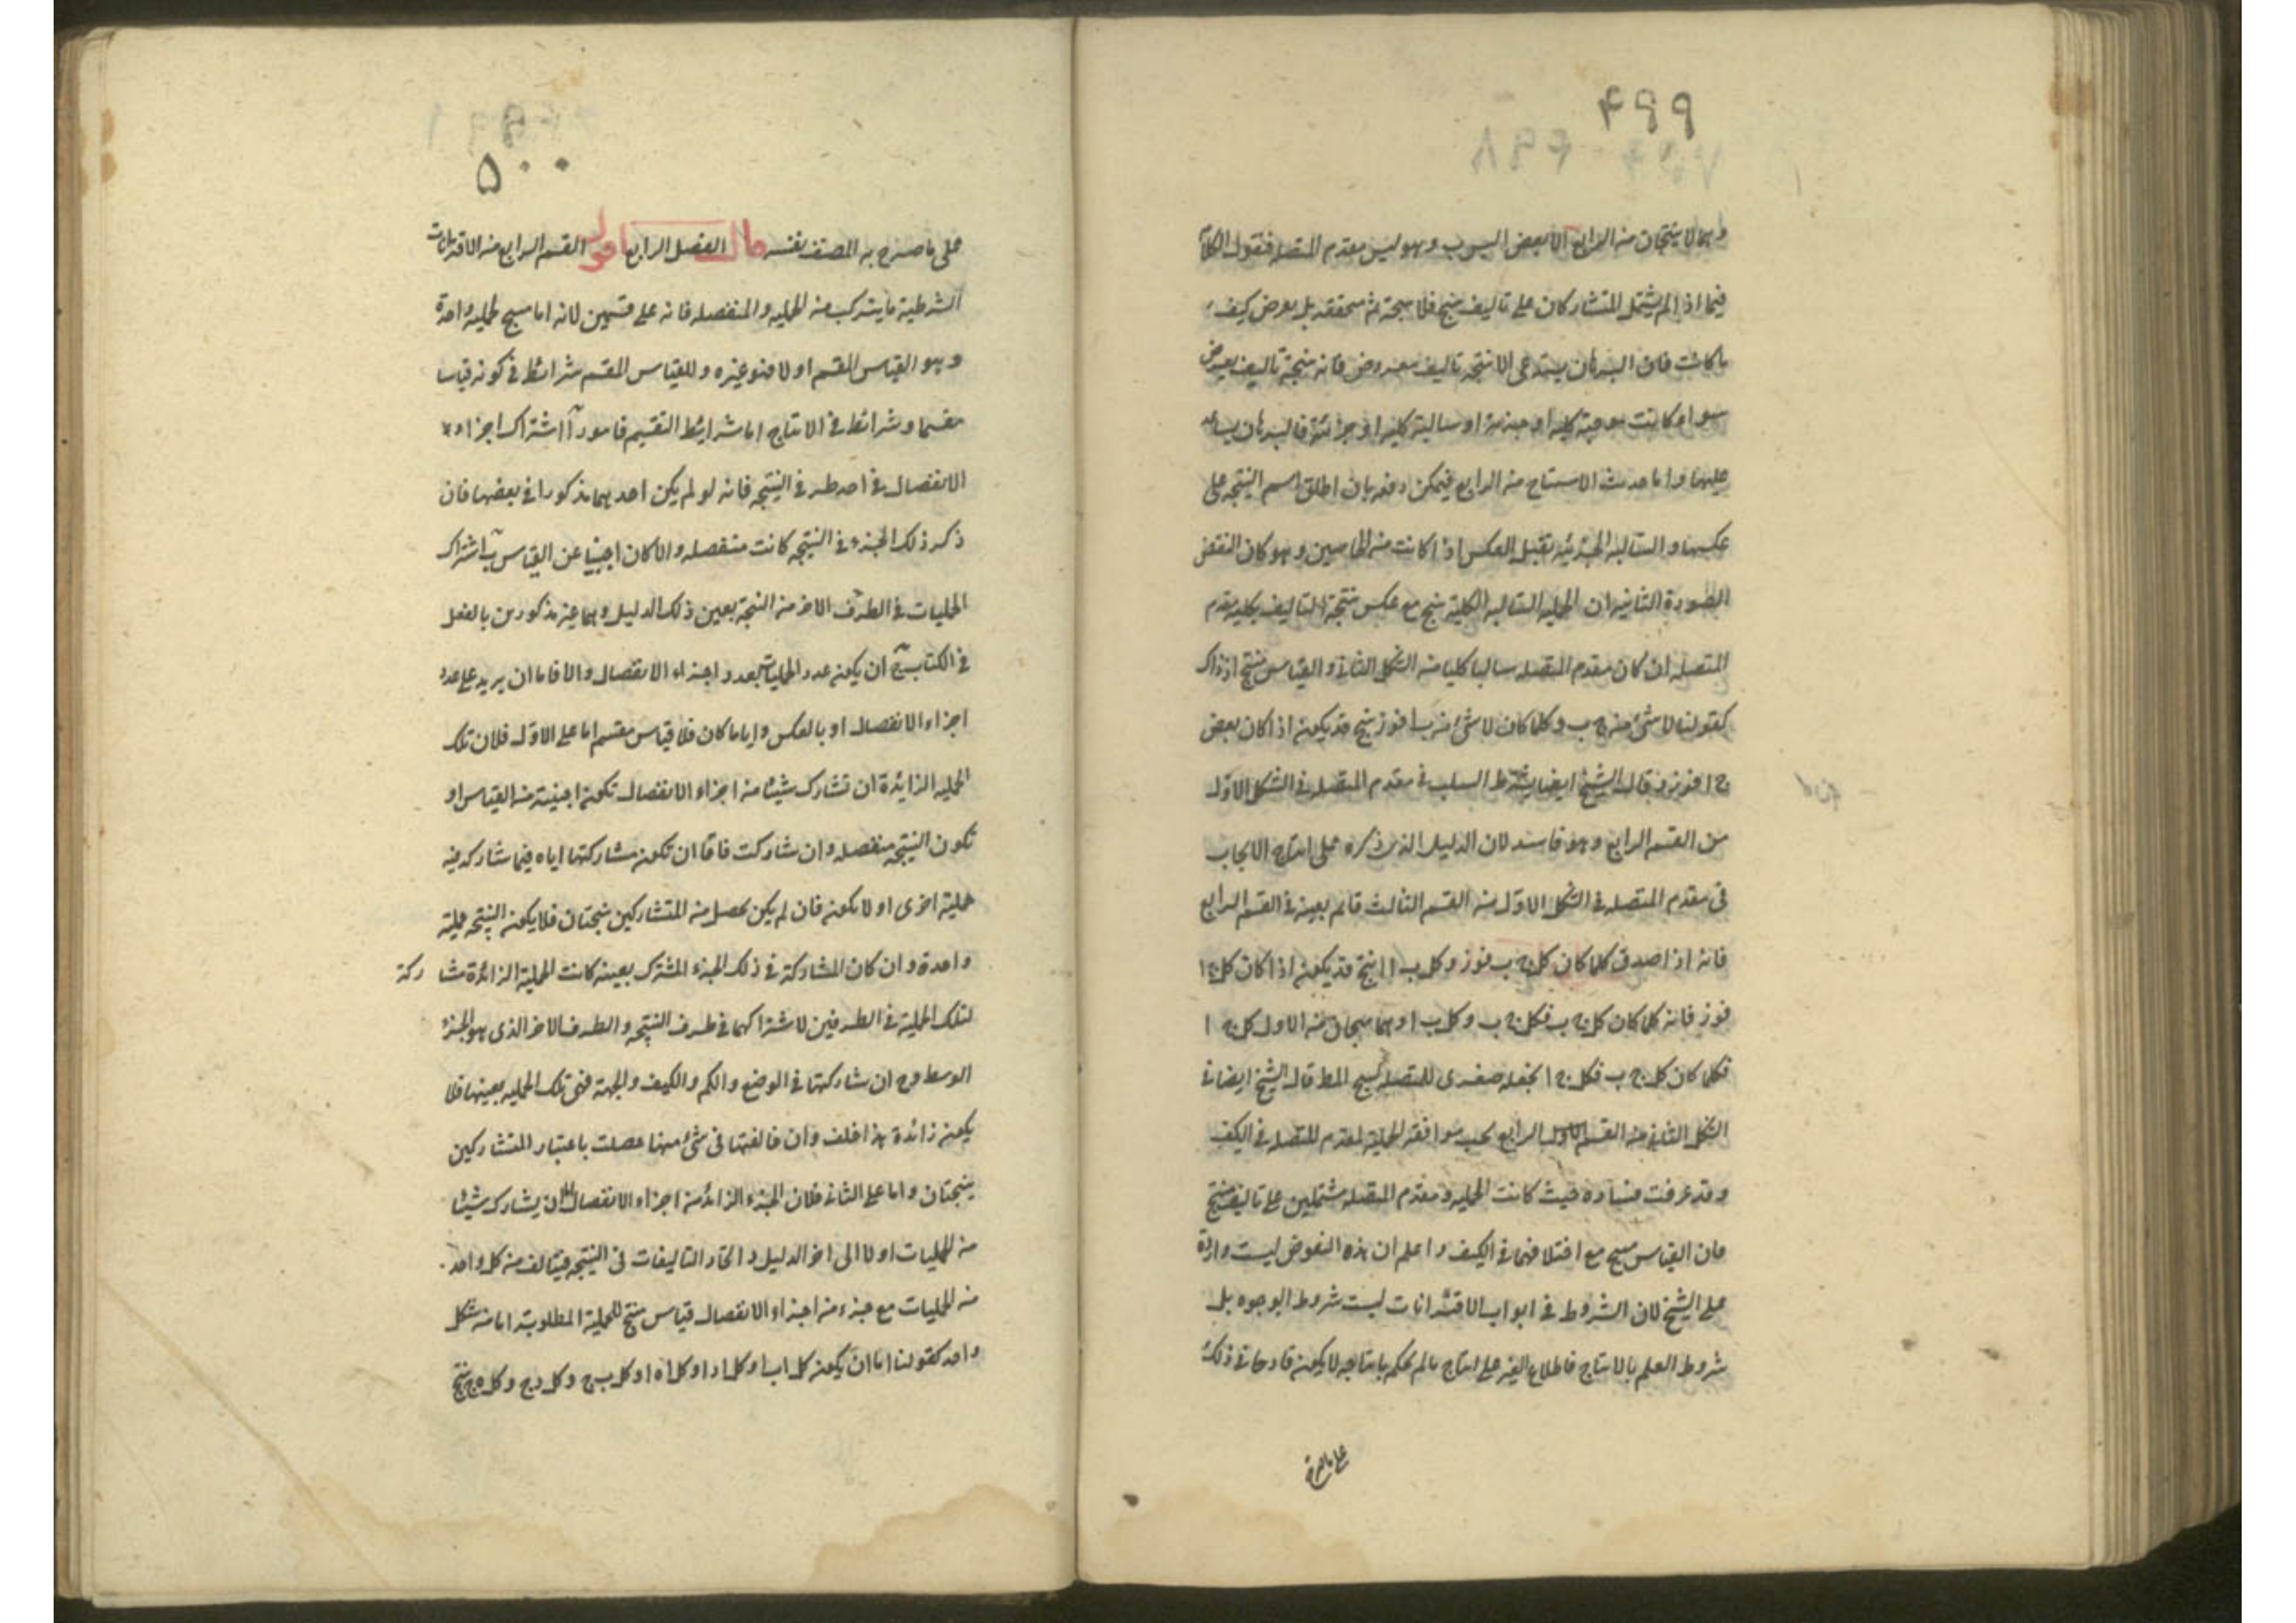 ۴۹۹
وهما لا ينتجان من الرابع الا بعض اليس ب وهو ليس مقدم المتصلة فنقول الكلام
فيما اذا لم يشتمل المتشاركان على تاليف منتج فلا نتيجة ثم محققة بل يعرض كيف
ما كانت فان البرهان يستدعى الا نتيجة تاليف مفروض فانه نتيجة تاليف يعرض
سواء كانت موجبة كلية او جزئية او سالبة كلية او جزئية فالبرهان يساعد
عليها واما حديث الاستنتاج من الرابع فيمكن دفعه بان اطلق اسم النتيجة على
عكسها والسالبة الجزئية تقبل العكس اذا كانت من الخاصين وهو كان النقض
الصورة الثانية ان الحملية السالبة الكلية ينتج مع عكس نتيجة التاليف بكلية مقدم
المتصلة ان كان مقدم المتصلة سالبا كليا من الشكل الثانى والقياس منتج اذ ذاك
كقولنا لا شئ من ج ب وكلما كان لا شئ من ب ا فوز ينتج قد يكون اذا كان بعض
ج ا فوز وقال الشيخ ايضا يشترط السلب فى مقدم المتصلة فى الشكل الاول
من القسم الرابع وهو فاسد لان الدليل الذى ذكره على انتاج الايجاب
فى مقدم المتصلة فى الشكل الاول من القسم الثالث قائم بعينه فى القسم الرابع
فانه اذا صدق كلما كان كل ج ب فوز وكل ب ا انتج قد يكون اذا كان كل ج ا
فوز فانه كلما كان كل ج ب فكل ج ب وكل ب ا وهما ينتجان من الاول كل ج ا
فكلما كان كل ج ب فكل ج ا نجعله صغرى للمتصلة لينتج المط قال الشيخ ايضا فى
الشكل الثانى من القسم الرابع يجب موافقة الحملية لمقدم المتصلة فى الكيف
وقد عرفت فساده حيث كانت الحملية ومقدم المتصلة مشتملين على تاليف منتج
فان القياس ينتج مع اختلافهما فى الكيف واعلم ان هذه النقوض ليست واردة
على الشيخ لان الشروط فى ابواب الاقترانات ليست شروط الوجوه بل
شروط العلم بالانتاج فاطلاع الغير على انتاج ما لم يحكم بانتاجه لا يكون قادحا فى ذلك
على ما صرح
۵۰۰
على ما صرح به المصنف نفسه قال الفصل الرابع اقول القسم الرابع من الاقترانات
الشرطية ما يتركب من الحملية والمنفصلة فانه على قسمين لانه اما ينتج حملية واحدة
وهو القياس المقسم او لا فهو غيره وللقياس المقسم شرائط فى كونه قياسا
مقسما وشرائط فى الانتاج اما شرايط التقسيم فامور آ اشتراك اجزاء
الانفصال فى احد طرفى النتيجة فانه لو لم يكن احدهما مذكورا فى بعضها فان
ذكر ذلك الجزء فى النتيجة كانت منفصلة والا كان اجنبيا عن القياس ب اشتراك
الحمليات فى الطرف الاخر من النتيجة بعين ذلك الدليل وهما غير مذكورين بالفعل
فى الكتاب ج ان يكون عدد الحمليات بعدد اجزاء الانفصال والا فاما ان يزيد على عدد
اجزاء الانفصال او بالعكس واياما كان فلا قياس مقسم اما على الاول فلان تلك
الحملية الزايدة ان تشارك شيئا من اجزاء الانفصال تكون اجنبية من القياس او
تكون النتيجة منفصلة وان شاركت فاما ان تكون مشاركتها اياه فيما شاركه فيه
حملية اخرى او لا يكون فان لم يكن يحصل من المتشاركين نتيجتان فلا يكون النتيجة حملية
واحدة وان كان المشاركة فى ذلك الجزء المشترك بعينه كانت الحملية الزائدة مشا ركة
لتلك الحملية فى الطرفين لاشتراكهما فى طرف النتيجة والطرف الاخر الذى هو الجزء
الوسط وح ان شاركتها فى الوضع والكم والكيف والجهة فهى تلك الحملية بعينها فلا
يكون زائدة هذا خلف وان خالفتها فى شئ منها حصلت باعتبار المتشاركين
نتيجتان واما على الثانى فلان الجزء الزائد من اجزاء الانفصال ان يشارك شيئا
من الحمليات او لا الى اخر الدليل د اتحاد التاليفات فى النتيجة فيتالف من كل واحد
من الحمليات مع جزء من اجزاء الانفصال قياس منتج للحملية المطلوبة اما من شكل
واحد كقولنا اما ان يكون كل ا ب او كل ا د او كل ا ه وكل ب ج وكل د ج وكل ه ج ينتج